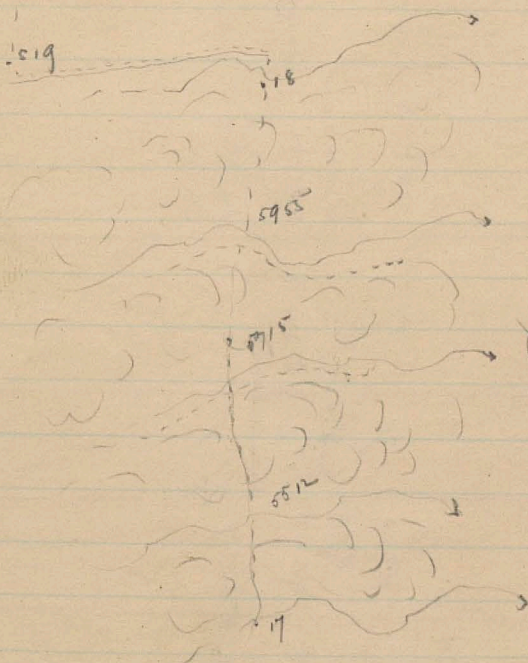 519
18
5955
5715
5512
17